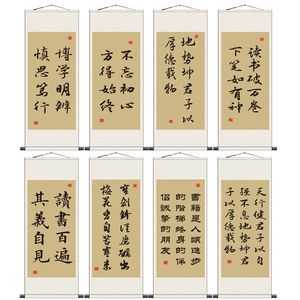 博学明辨
慎思笃行
不忘初心
方得始终
地势坤君子以
厚德载物
读书破万卷
下笔如有神
讀書百遍
其義自見
宝剑锋從磨砺出
梅花香自苦寒来
書籍是人類進步
的階梯終身的伴
侣誠挚的朋友
天行健君子以自
强不息地势坤君
子以厚德载物